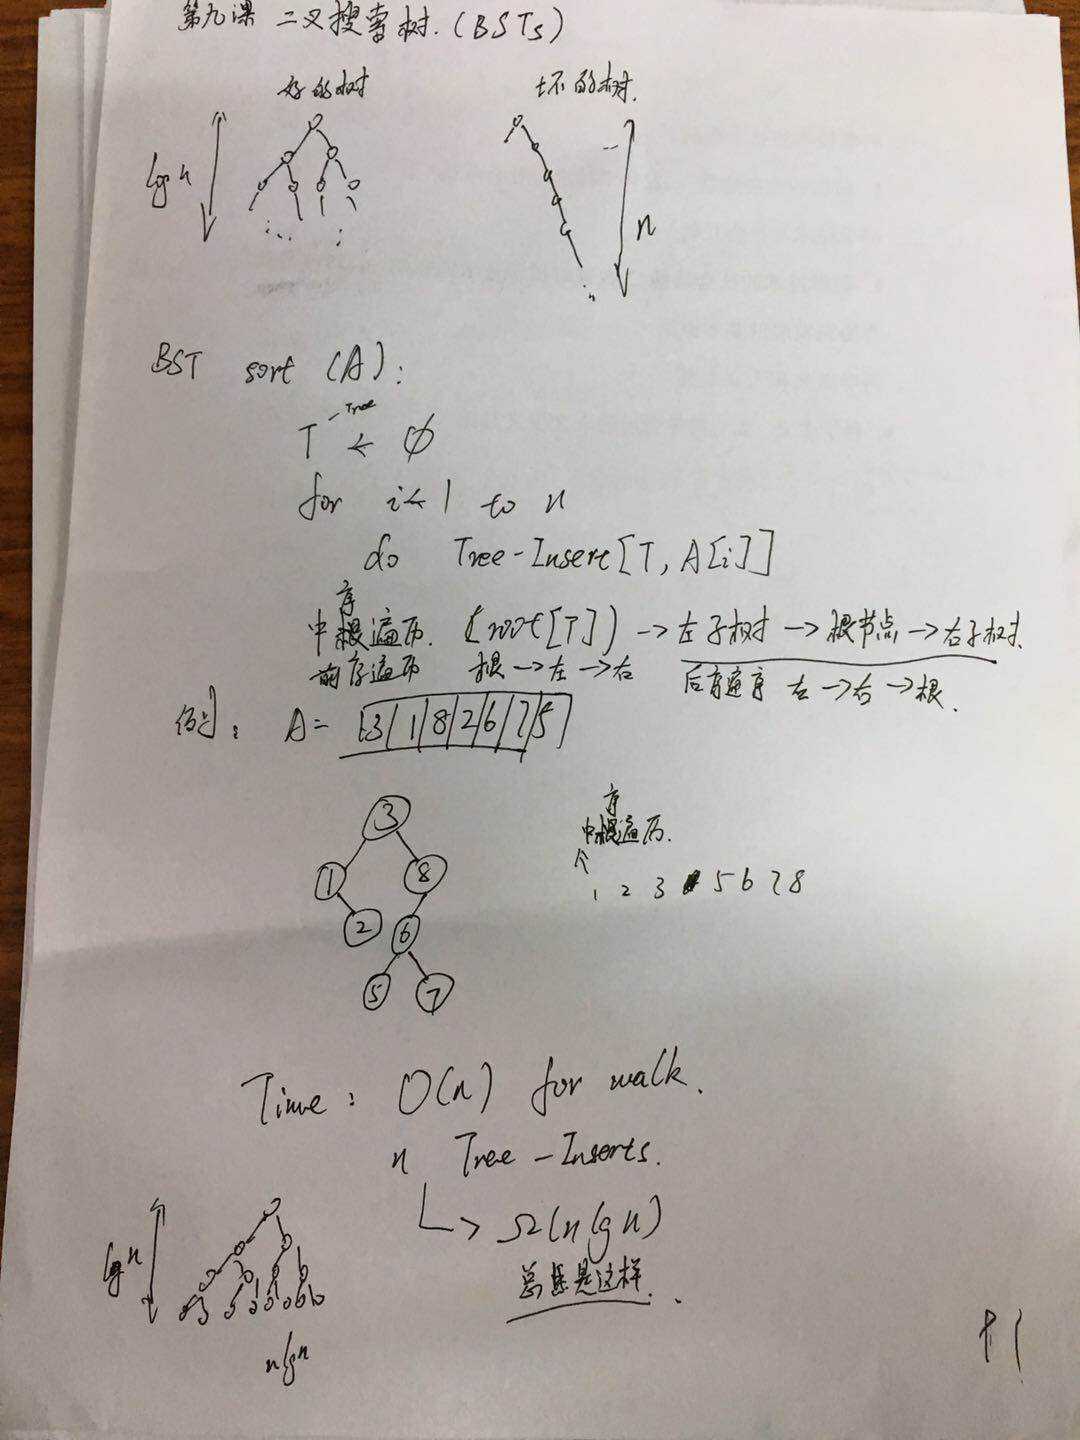 第九课 二叉搜索树.(BSTs)
好的树 坏的树.
lgn
n
BST sort (A):
Tree
T ← ∅
for i←1 to n
do Tree-Insert[T, A[i]]
序
中根遍历. (root[T]) → 左子树 → 根节点 → 右子树.
前序遍历 根→左→右 后序遍序 左→右→根.
例: A= [3|1|8|2|6|7|5]
3
序
中根遍历.
1 8
1 2 3 5 6 7 8
2 6
5 7
Time: O(n) for walk.
n Tree-Inserts.
Ω(n lg n)
lgn
总是这样.
nlgn
P1